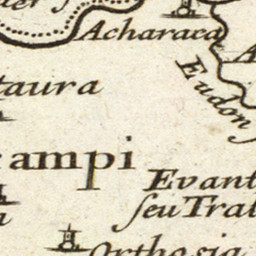 Acharaca
Eudon
taura
campi
Evant
ſeu Tral
Orthosia